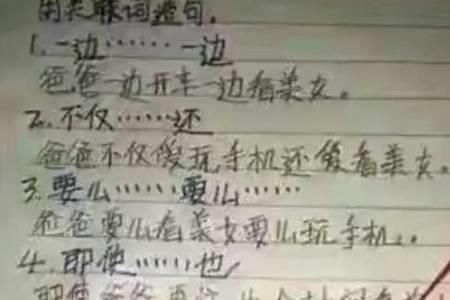 用关联词造句。
1.一边……一边
爸爸一边开车一边看美女。
2.不仅……还
爸爸不仅爱玩手机还爱看美女。
3.要么……要么……
爸爸要么看美女要么玩手机。
4.即使……也
即使爸爸